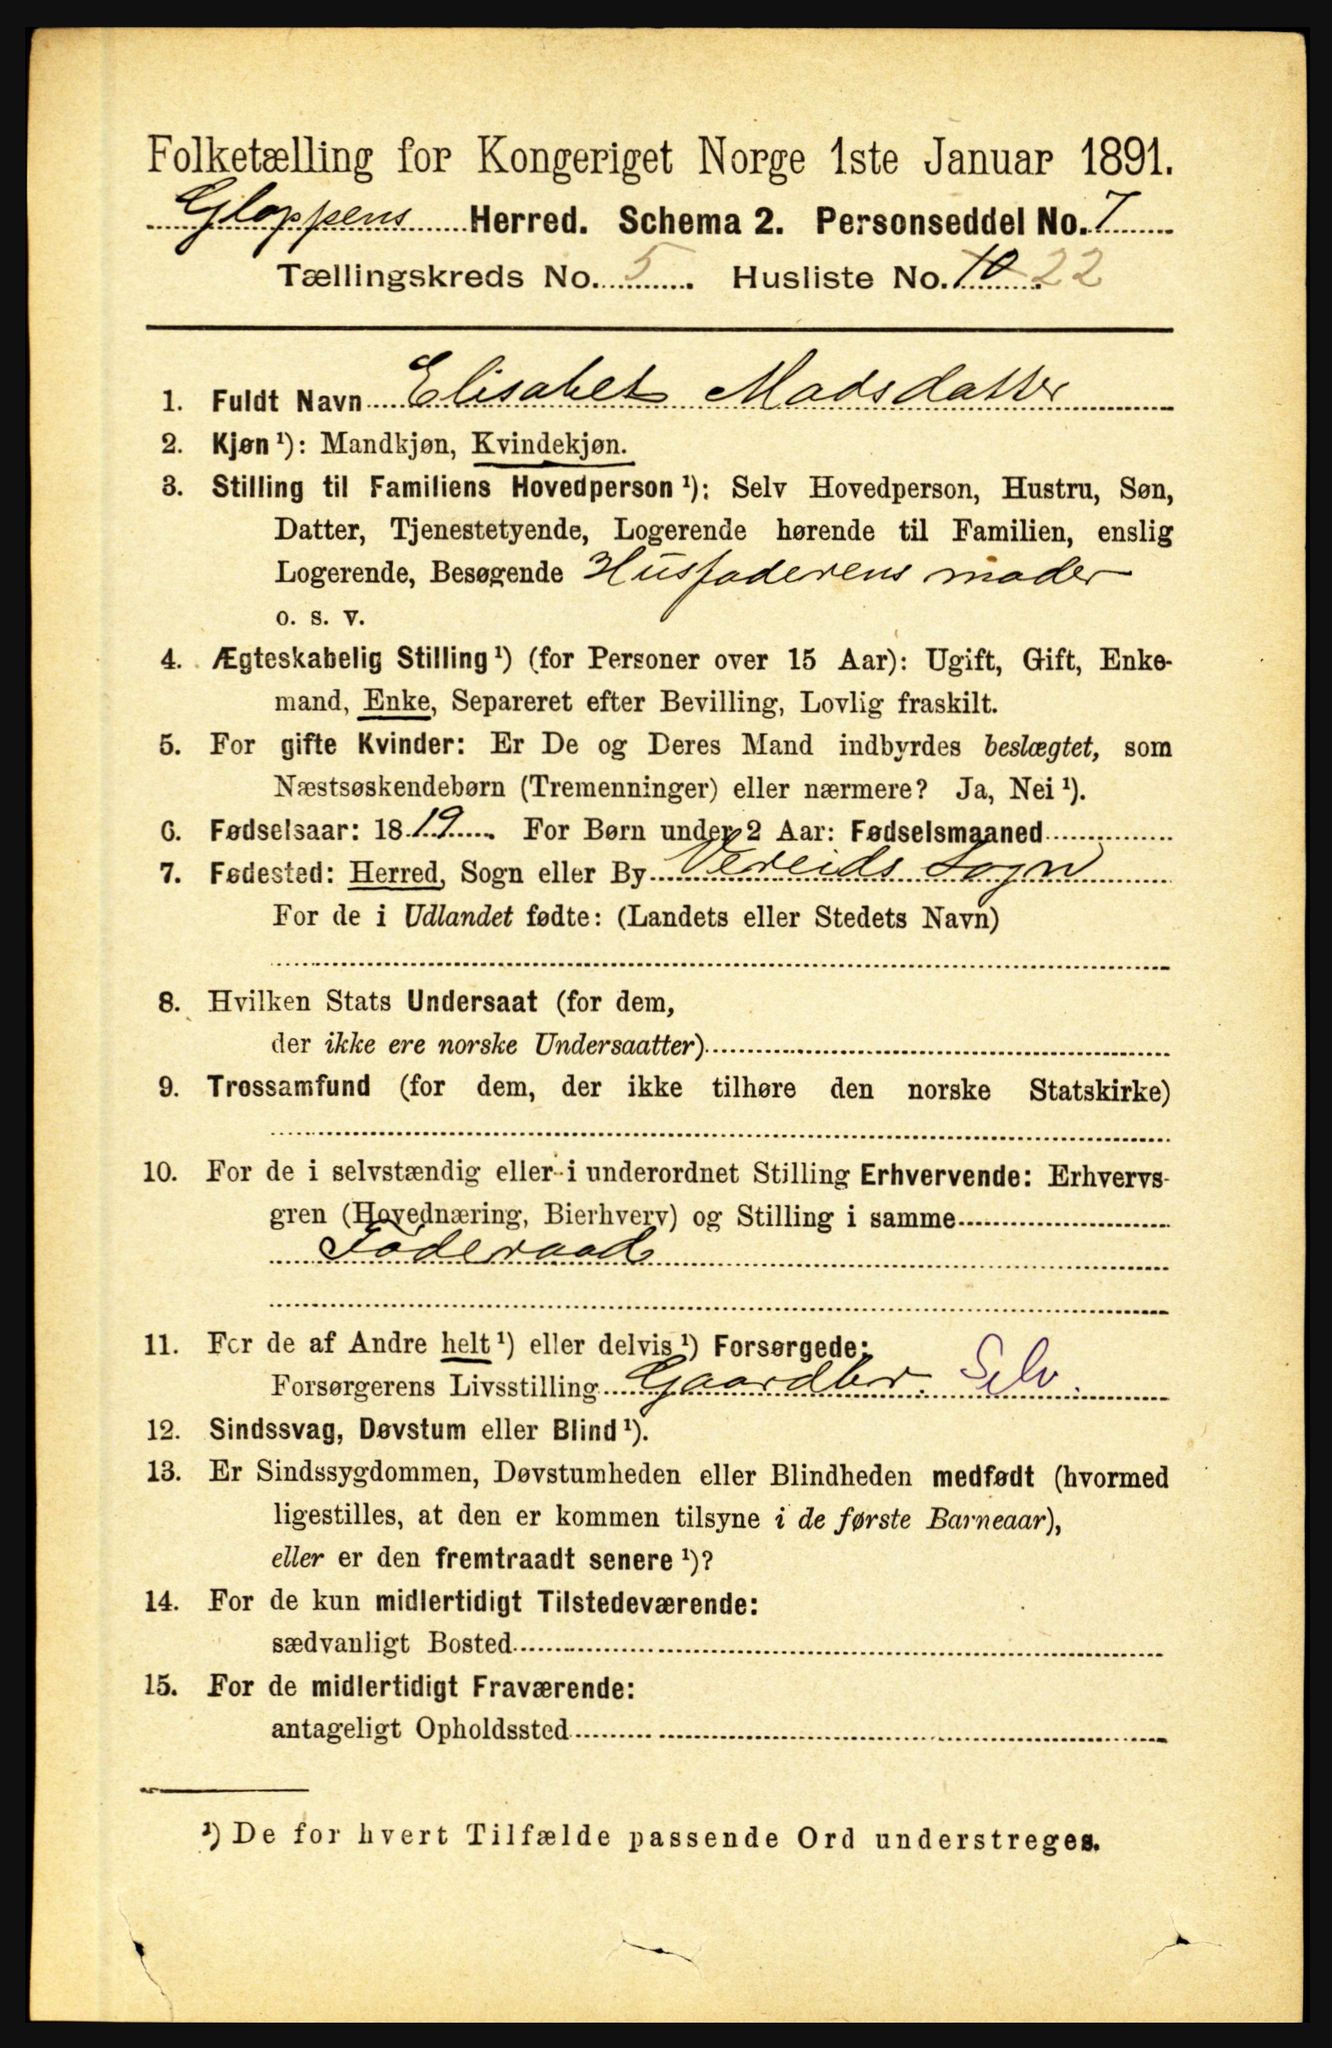 Folketælling for Kongeriget Norge 1ste Januar 1891.
Gloppens Herred. Schema 2. Personseddel No. 7
Tællingskreds No. 5. Husliste No. 10 22
1. Fuldt Navn Elisabet Madsdatter
2. Kjøn ¹): Mandkjøn, Kvindekjøn.
3. Stilling til Familiens Hovedperson ¹): Selv Hovedperson, Hustru, Søn,
Datter, Tjenestetyende, Logerende hørende til Familien, enslig
Logerende, Besøgende Husfaderens moder
o. s. v.
4. Ægteskabelig Stilling ¹) (for Personer over 15 Aar): Ugift, Gift, Enke-
mand, Enke, Separeret efter Bevilling, Lovlig fraskilt.
5. For gifte Kvinder: Er De og Deres Mand indbyrdes beslægtet, som
Næstsøskendebørn (Tremenninger) eller nærmere? Ja, Nei ¹).
6. Fødselsaar: 1819. For Børn under 2 Aar: Fødselsmaaned
7. Fødested: Herred, Sogn eller By Vereids Sogn
For de i Udlandet fødte: (Landets eller Stedets Navn)
8. Hvilken Stats Undersaat (for dem,
der ikke ere norske Undersaatter)
9. Trossamfund (for dem, der ikke tilhøre den norske Statskirke)
10. For de i selvstændig eller i underordnet Stilling Erhvervende: Erhvervs-
gren (Hovednæring, Bierhverv) og Stilling i samme
Føderaad
11. For de af Andre helt ¹) eller delvis ¹) Forsørgede:
Forsørgerens Livsstilling Gaardbr. Selv.
12. Sindssvag, Døvstum eller Blind ¹).
13. Er Sindssygdommen, Døvstumheden eller Blindheden medfødt (hvormed
ligestilles, at den er kommen tilsyne i de første Barneaar),
eller er den fremtraadt senere ¹)?
14. For de kun midlertidigt Tilstedeværende:
sædvanligt Bosted
15. For de midlertidigt Fraværende:
antageligt Opholdssted
¹) De for hvert Tilfælde passende Ord understreges.